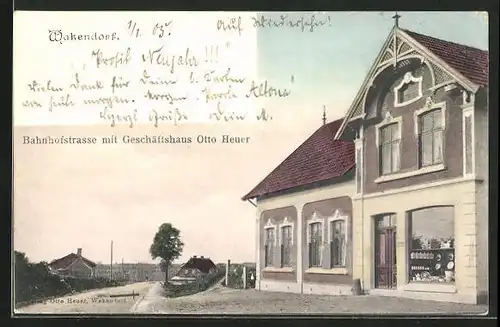 Wakendorf. 1/1. 05. Auf Wiedersehn!
"Prosit Neujahr!!!"
Vielen Dank für Deine l. Karten
von heute morgen.
Herzl. Grüße Dein
Bahnhofstrasse mit Geschäftshaus Otto Heuer
Verlag Otto Heuer, Wakendorf.